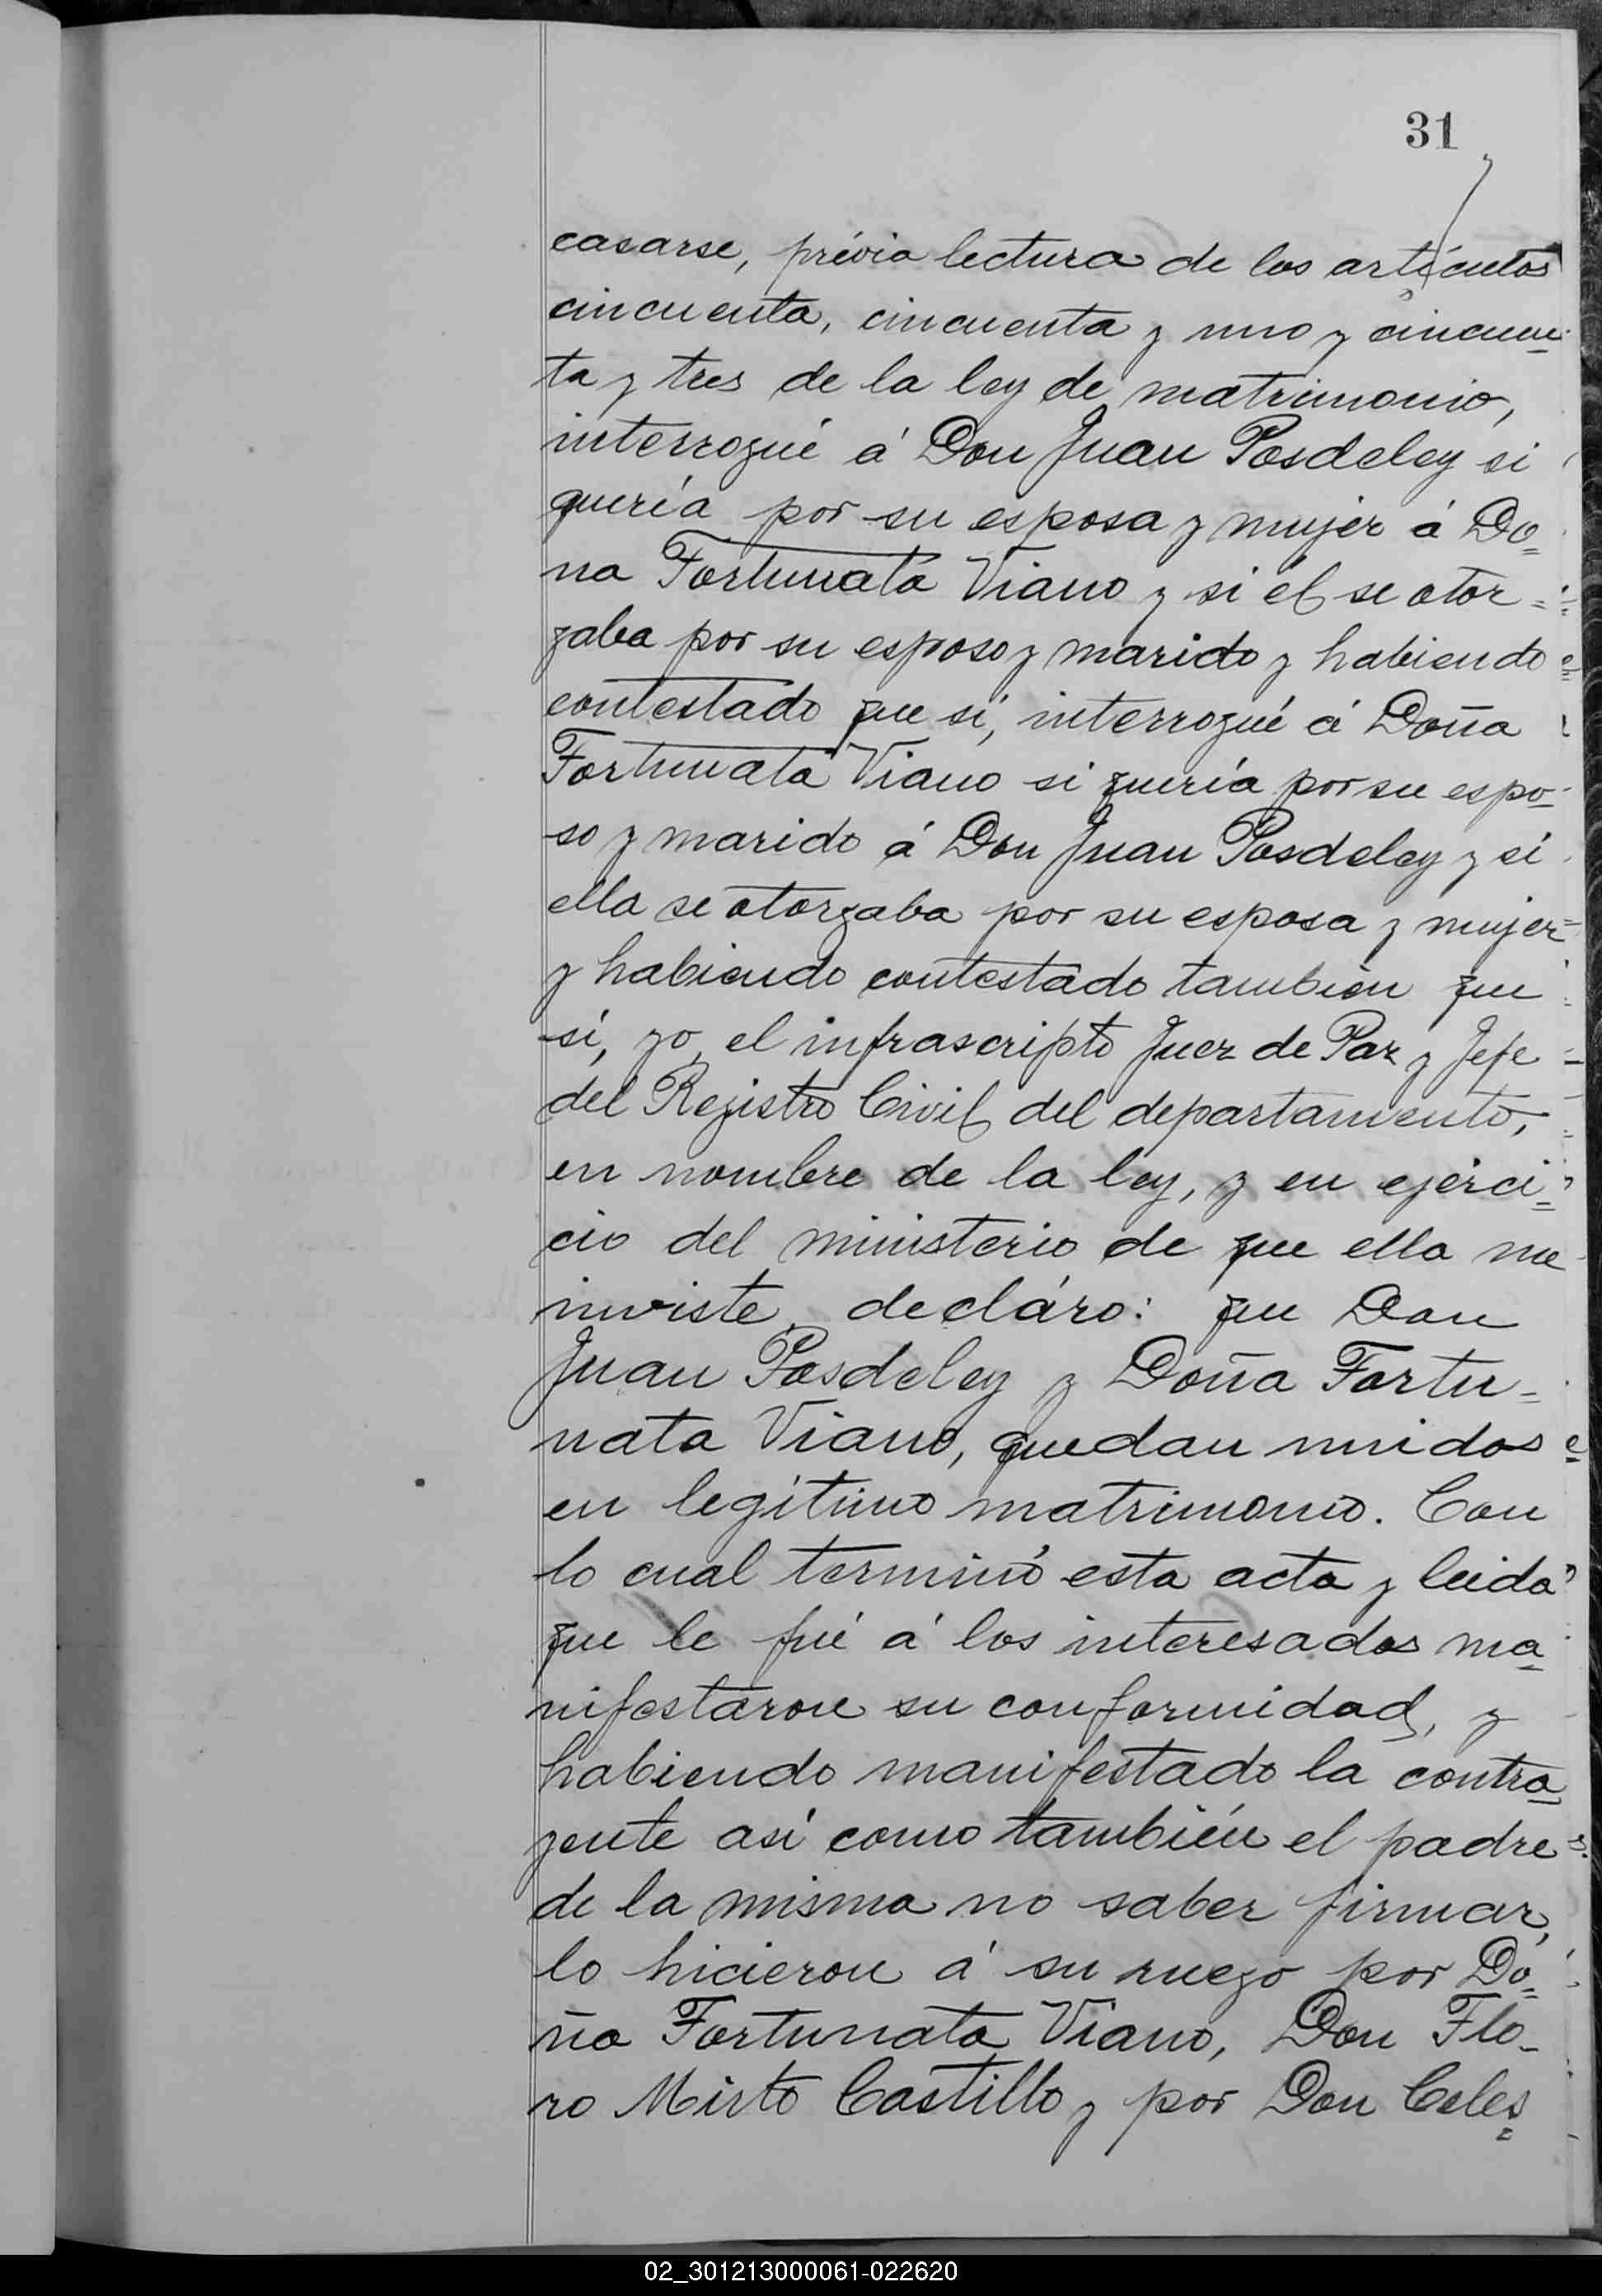 31
casarse, prévia lectura de los artículos
cincuenta, cincuenta y uno y cincuen
ta y tres de la ley de matrimonio,
interrogué á Don Juan Posdeley si
quería por su esposa y mujer á Do=
na Fortunata Viano y si él se otor=
gaba por su esposo y marido y habiendo
contestado que sí, interrogué á Doña
Fortunata Viano si quería por su espo-
so y marido á Don Juan Posdeley y si
ella se otorgaba por su esposa y mujer
y habiendo contestado también que
sí, yo, el infrascripto Juez de Paz y Jefe
del Registro Civil del departamento,
en nombre de la ley, y en ejerci=
cio del ministerio de que ella me
inviste, decláro: que Don
Juan Posdeley y Doña Fortu=
nata Viano, quedan unidos
en legítimo matrimonio. Con
lo cual terminó esta acta y leida
que le fué á los interesados ma
nifestaron su conformidad, y
habiendo manifestado la contra
yente así como también el padre
de la misma no saber firmar,
lo hicieron á su ruego por Do=
ña Fortunata Viano, Don Flo-
ro Mirto Castillo y por Don Celes
02_301213000061-022620